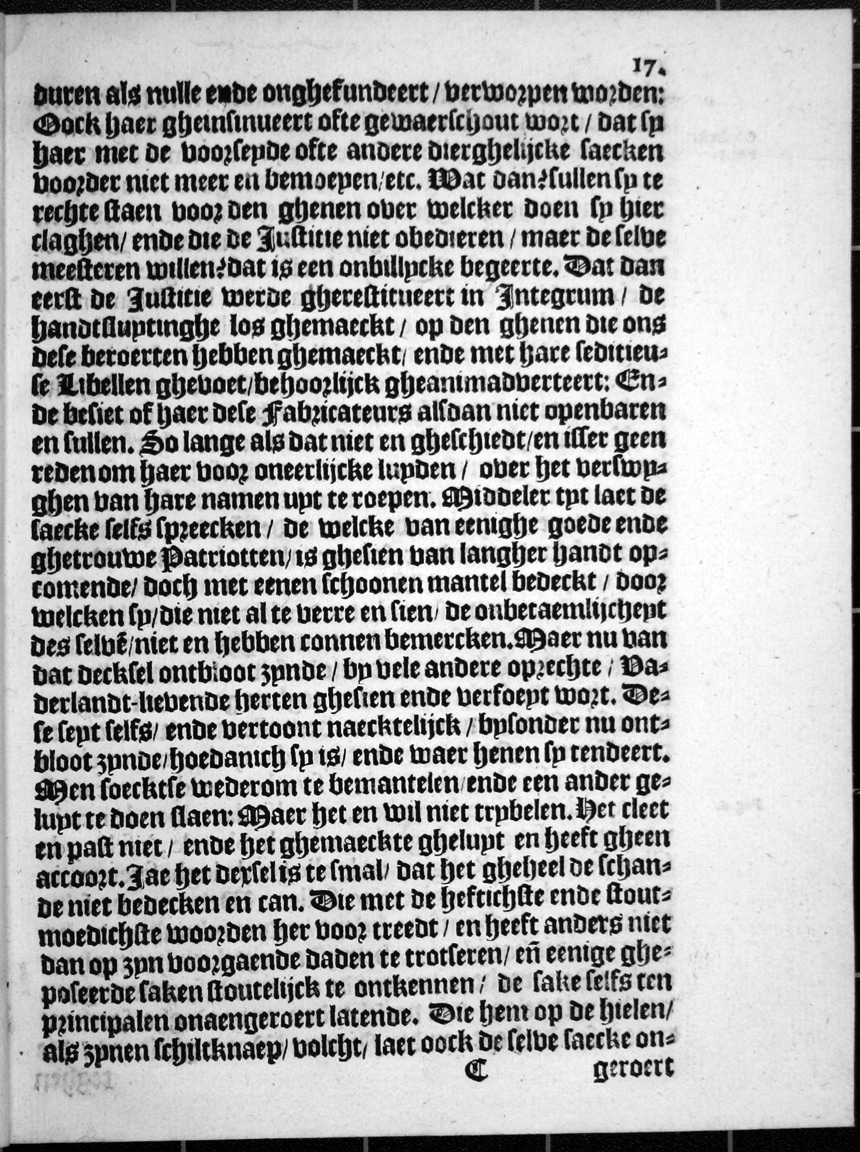 17.
duren als nulle ende onghefundeert / verworpen worden:
Oock haer gheinsinueert ofte gewaerschout wort / dat sy
haer met de voorseyde ofte andere dierghelijcke saecken
voorder niet meer en bemoeyen/etc. Wat dan? sullen sy te
rechte staen voor den ghenen over welcker doen sy hier
claghen/ ende die de Justitie niet obedieren / maer de selve
meesteren willen? dat is een onbillycke begeerte. Dat dan
eerst de Justitie werde gherestitueert in Integrum / de
handtsluytinghe los ghemaeckt / op den ghenen die ons
dese beroerten hebben ghemaeckt/ ende met hare seditieu-
se Libellen ghevoet/behoorlijck gheanimadverteert: En-
de besiet of haer dese Fabricateurs alsdan niet openbaren
en sullen. So lange als dat niet en gheschiedt/en isser geen
reden om haer voor oneerlijcke luyden / over het verswy-
ghen van hare namen uyt te roepen. Middeler tyt laet de
saecke selfs spreecken / de welcke van eenighe goede ende
ghetrouwe Patriotten/ is ghesien van langher handt op-
comende/ doch met eenen schoonen mantel bedeckt / door
welcken sy/die niet al te verre en sien/ de onbetaemlijcheyt
des selvē/niet en hebben connen bemercken. Maer nu van
dat decksel ontbloot zynde / by vele andere oprechte / Va-
derlandt-lievende herten ghesien ende verfoeyt wort. De-
se seyt selfs/ ende vertoont naecktelijck / bysonder nu ont-
bloot zynde/hoedanich sy is/ ende waer henen sy tendeert.
Men soecktse wederom te bemantelen/ende een ander ge-
luyt te doen slaen: Maer het en wil niet trybelen. Het cleet
en past niet / ende het ghemaeckte gheluyt en heeft gheen
accoort. Jae het dexsel is te smal/ dat het gheheel de schan-
de niet bedecken en can. Die met de heftichste ende stout-
moedichste woorden her voor treedt / en heeft anders niet
dan op zyn voorgaende daden te trotseren/ en̄ eenige ghe-
poseerde saken stoutelijck te ontkennen / de sake selfs ten
principalen onaengeroert latende. Die hem op de hielen/
als zynen schiltknaep/ volcht/ laet oock de selve saecke on-
C geroert